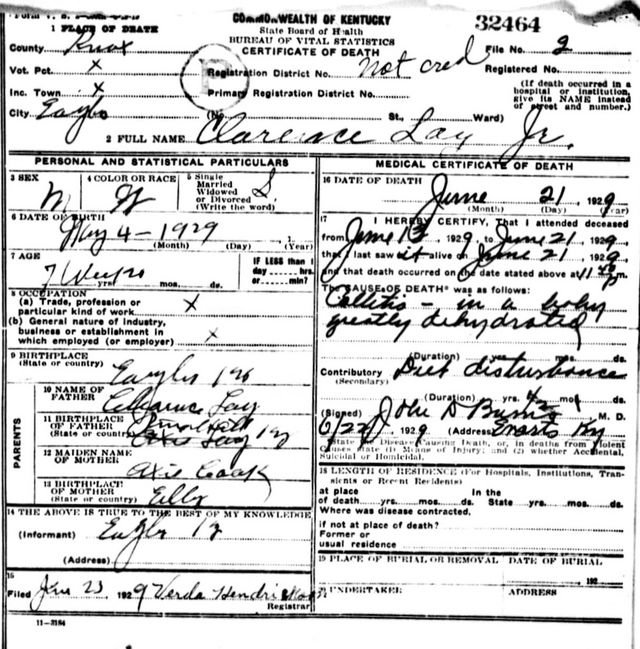 Form V. S.
COMMONWEALTH OF KENTUCKY
32464
1 PLACE OF DEATH
State Board of Health
BUREAU OF VITAL STATISTICS
CERTIFICATE OF DEATH
County Knox
File No. 2
Vot. Pct. x
Registration District No. Not cred
Registered No.
Inc. Town x
Primary Registration District No.
(If death occurred in a
hospital or institution,
give its NAME instead
of street and number.)
City
(No. St., Ward)
2 FULL NAME Clarence Lay Jr.
PERSONAL AND STATISTICAL PARTICULARS
3 SEX M
4 COLOR OR RACE W
5 Single
Married
Widowed
or Divorced
(Write the word) S
6 DATE OF BIRTH
May 4 - 1929
(Month) (Day) (Year)
7 AGE
7
IF LESS than 1
day ---- hrs.
or ---- min?
8 OCCUPATION
(a) Trade, profession or
particular kind of work x
(b) General nature of industry,
business or establishment in
which employed (or employer) x
9 BIRTHPLACE
(State or country)
PARENTS
10 NAME OF
FATHER Lay
11 BIRTHPLACE
OF FATHER
(State or country)
12 MAIDEN NAME
OF MOTHER
13 BIRTHPLACE
OF MOTHER
(State or country)
14 THE ABOVE IS TRUE TO THE BEST OF MY KNOWLEDGE
(Informant)
(Address)
15
Filed 1929 Verda
Registrar
11-3184
MEDICAL CERTIFICATE OF DEATH
16 DATE OF DEATH
June 21, 1929
(Month) (Day) (Year)
17 I HEREBY CERTIFY, That I attended deceased
from June 13, 1929, to June 21, 1929
that I last saw it alive on June 21, 1929
and that death occurred on the date stated above at 11 m.
The CAUSE OF DEATH* was as follows:
Collitis - in a baby
greatly dehydrated
(Duration) yrs. mos. ds.
Contributory Diet disturbance
(Secondary)
(Duration) yrs. mos. ds.
(Signed) John D M. D.
6/22, 1929 (Address) Ky
*State the Disease Causing Death, or, in deaths from Violent
Causes state (1) Means of Injury; and (2) whether Accidental,
Suicidal or Homicidal.
18 LENGTH OF RESIDENCE (For Hospitals, Institutions, Tran-
sients or Recent Residents)
at place In the
of death yrs. mos. ds. State yrs. mos. ds.
Where was disease contracted,
if not at place of death?
Former or
usual residence
19 PLACE OF BURIAL OR REMOVAL DATE OF BURIAL
192
UNDERTAKER ADDRESS